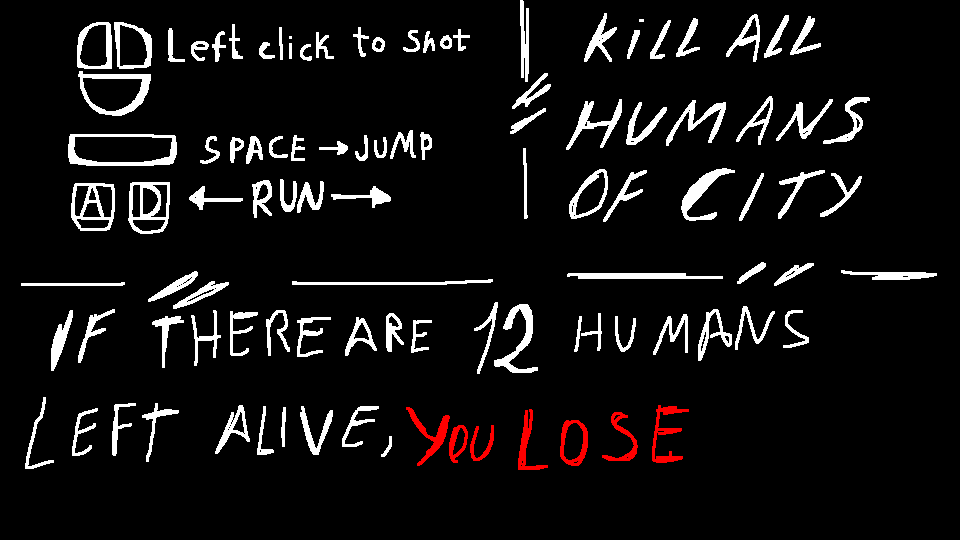 Left click to shot
SPACE → JUMP
A D ← RUN →
KiLL ALL
HUMANS
OF CITY
IF THERE ARE 12 HUMANS
LEFT ALIVE, YOU LOSE